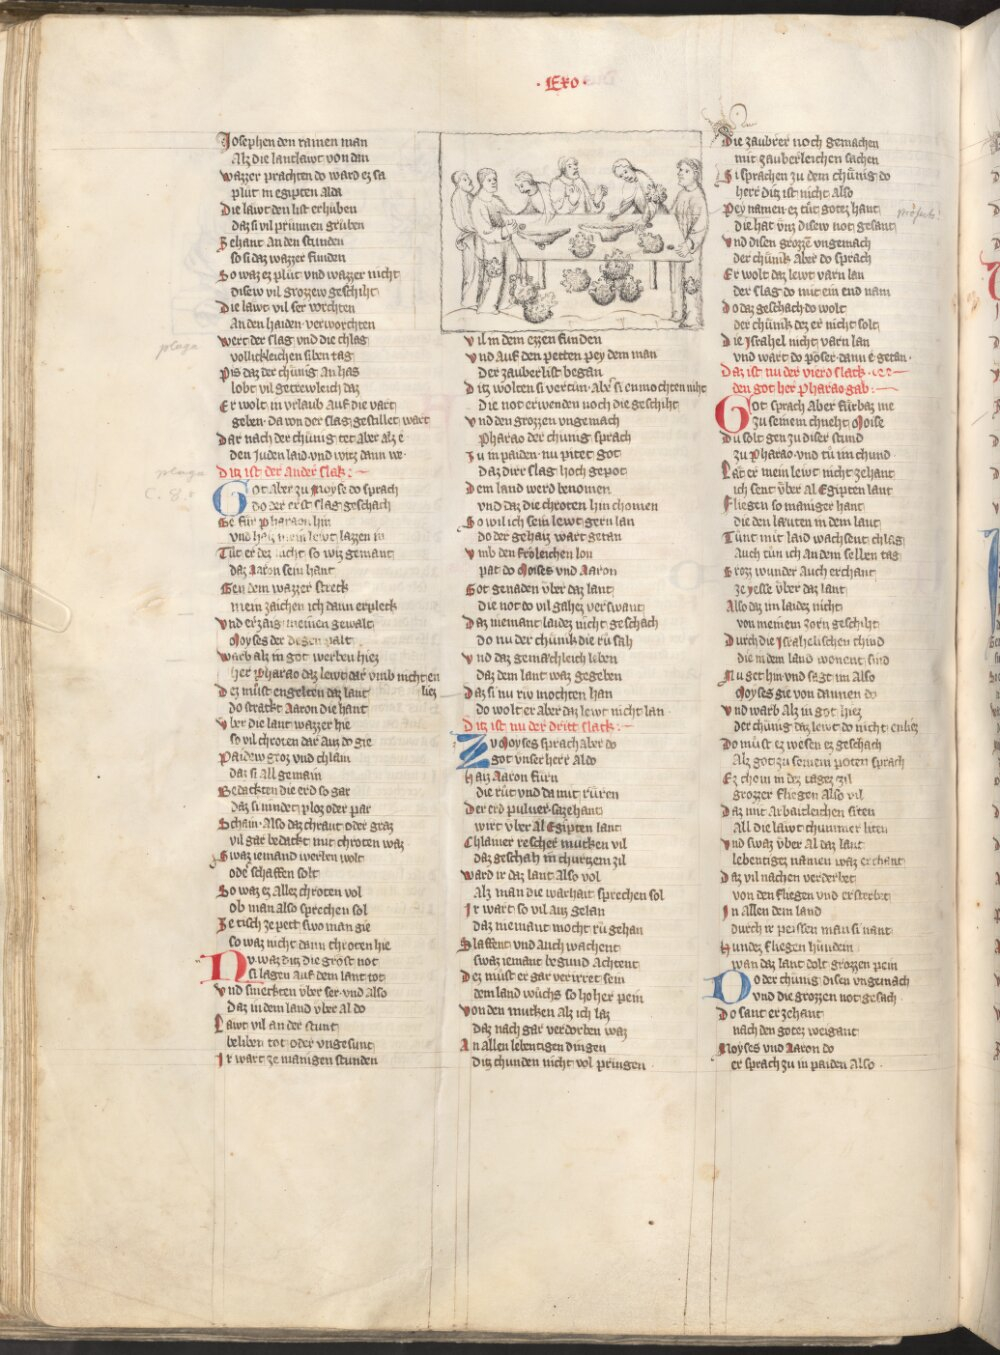 · Exo ·
Josephen den rainen man
Alz die lantlawt von dan
wazzer prachten do ward ez sa
plut in egipten alda
Die lawt den list erhuben
daz si vil prunnen gruben
Zehant An den stunden
so si daz wazzer funden
So waz ez plut vnd wazzer nicht
disew vil grozzew geschiht
Die lawt vil ser vorchten
An den haiden verworchten
wert der slag vnd die chlag
vollichleichen siben tag
Pis daz der chunig An has
lobt vil getrewleich daz
Er wolt in vrlaub Auf die vart
geben · da von der slag gestillet wart
Dar nach der chunig tet Aber alz e
den Juden laid vnd witz dann we ·
plaga
plaga
C. 8.
Ditz ist der Ander slak :
Got Aber zu Moyse do sprach
do der erst slag geschach
Ge für Pharaon hin
vnd haiz mein lewt lazzen in
Tut er dez nicht so wiz gemant
daz Aaron sein hant
Gen dem wazzer streck
mein zaichen ich dann erpleck
Vnd erzaig meinen gewalt
Moyses der degen palt
Warb alz in got werben hiez
her Pharao daz lewt dar vmb nicht en
liez
Dez must engelten daz lant
do strakt Aaron die hant
Vber die lant wazzer hie
so vil chroten dar auz do gie
Paidew groz vnd chlain
daz si all gemain
Bedackten die erd so gar
daz si nindert ploz oder par
Schain · Also daz chraut oder graz
vil gar bedackt mit chroten waz
Swaz iemand werben wolt
oder schaffen solt
So waz ez allez chroten vol
ob man also sprechen sol
Ze tisch ze pett swo man gie
so waz nicht dann chroten hie
Nv waz ditz die grost not
si lagen auf dem lant tot
Vnd smekten vber ser vnd also
daz in dem land vber al do
Lawt vil an der stunt
beliben tot oder vngesunt
Ir wart ze manigen stunden
Vil in dem ezzen funden
Vnd Auf den petten pey dem man
Der zauberlist began
Ditz wolten si vertun · Aber si enmochten niht
Die not erwenden noch die geschiht
Vnd den grozzen vngemach
Pharao der chunig sprach
Zu in paiden · nu pitet got
daz dirr slag hoch gepot
Dem land werd benomen
vnd daz die chroten hin chomen
So wil ich sein lewt gern lan
do der gehaiz wart getan
Vmb den frôleichen lon
pat do Moises vnd Aaron
Got genaden vber daz lant
die not do vil gahez verswant
Daz niemant laidez nicht geschach
do nu der chunik die ru sah
Vnd daz gemachleich leben
daz dem lant waz gegeben
Daz si nu riw mochten han
do wolt er aber daz lewt nicht lan ·
Ditz ist nu der dritt slack :
Zv Moyses sprach aber do
got vnser herr Aldo
haiz Aaron furn
die rut vnd da mit ruren
Der erd puluer · sazehant
wirt vber Al Egipten lant
Chlainer rescher mucken vil
daz geschah in churtzem zil
Ward ir daz lant Also vol
Alz man die warhait sprechen sol
Ir wart so vil auz gelan
daz niemant mocht ru gehan
Slaffent vnd Auch wachent
swaz iemant begund Achtent
Dez must er gar verirret sein
dem land wuchs so hoher pein
Von den mucken Alz ich laz
daz nach gar verdorben waz
An allen lebentigen dingen
ditz chunden nicht vol pringen ·
Die zaubrer noch gemachen
mit zauberleichen sachen
Si sprachen zu dem chunig do
herr ditz ist nicht Also
Pey namen ez tut gotez hant
die hat vnz disew not gesant
Vnd disen grozzen vngemach
der chunik Aber do sprach
Er wolt daz lewt varn lan
der slag do mit ein end nam
Do daz geschach do wolt
der chunik dez er nicht solt
Die Israhel nicht varn lan
vnd wart do poser dann e getan ·
Daz ist nu der vierd slack ·
den got her Pharao gab :
Got sprach Aber furbaz me
zu seinem chneht Moise
Du solt gen zu diser stund
zu Pharao · vnd tu im chund ·
Lat er mein lewt nicht zehant
ich sent vber Al Egipten lant
Fliegen so maniger hant
die den lauten in dem lant
Tunt mit laid wachsent chlag
Auch tun ich An dem selben tag
Groz wunder Auch erchant
ze yesse vber daz lant
Also daz im laidez nicht
von meinem zorn geschiht
Durch die Israhelischen chind
die in dem land wonent sind
Nu get hin vnd sagt im Also
Moyses gie von dannen do
Vnd warb Alz in got hiez
der chunig daz lewt do nicht enliez
Do must ez wesen ez geschach
Alz got zu seinem poten sprach
Ez chom in dez tagez zil
grozzer fliegen Also vil
Daz mit Arbaitleichen siten
All die lawt chummer liten
Vnd swaz vber Al daz lant
lebentigez namen waz erchant
Daz vil nachen verderbet
von den fliegen vnd ersterbet
In allen dem land
durch ir peissen man si nant
Hundez fliegen hundein
wan daz lant dolt grozzen pein
Do der chunig disen vngemach
vnd die grozzen not gesach
Do sant er zehant
nach den gotez weigant
Moyses vnd Aaron do
er sprach zu in paiden Also ·